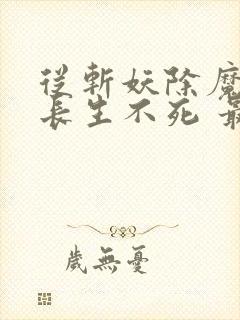 從斬妖除魔
長生不死 最
歲無憂